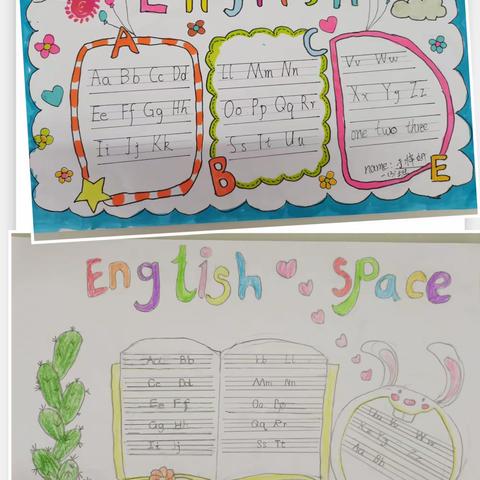 English
A
Aa Bb Cc Dd
Ee Ff Gg Hh
Ii Jj Kk
Ll Mm Nn
Oo Pp Qq Rr
Ss Tt Uu
B
C
Vv Ww
Xx Yy Zz
one two three
name:
E
English Space
Aa Bb
Cc Dd
Ee Ff
Gg Hh
Ii Jj
Ll
Mm Nn
Oo Pp
Qq Rr
Ss Tt
Uu Vv Ww
Xx Yy Zz
Aa Bb